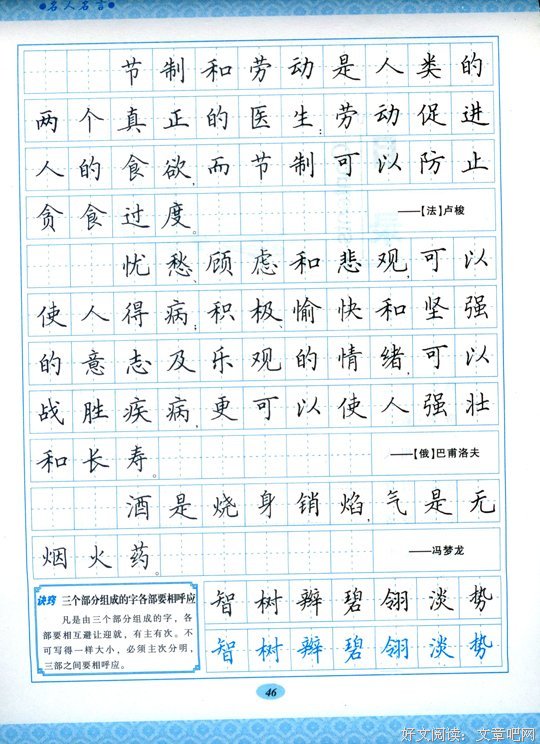 ●名人名言●
节制和劳动是人类的
两个真正的医生;劳动促进
人的食欲,而节制可以防止
贪食过度。 ——【法】卢梭
忧愁、顾虑和悲观,可以
使人得病;积极、愉快和坚强
的意志及乐观的情绪,可以
战胜疾病,更可以使人强壮
和长寿。 ——【俄】巴甫洛夫
酒是烧身销焰,气是无
烟火药。 ——冯梦龙
诀窍 三个部分组成的字各部要相呼应
凡是由三个部分组成的字,各
部要相互避让迎就,有主有次。不
可写得一样大小,必须主次分明,
三部之间要相呼应。
智树辩碧翎淡势
智树辩碧翎淡势
46
好文阅读:文章吧网